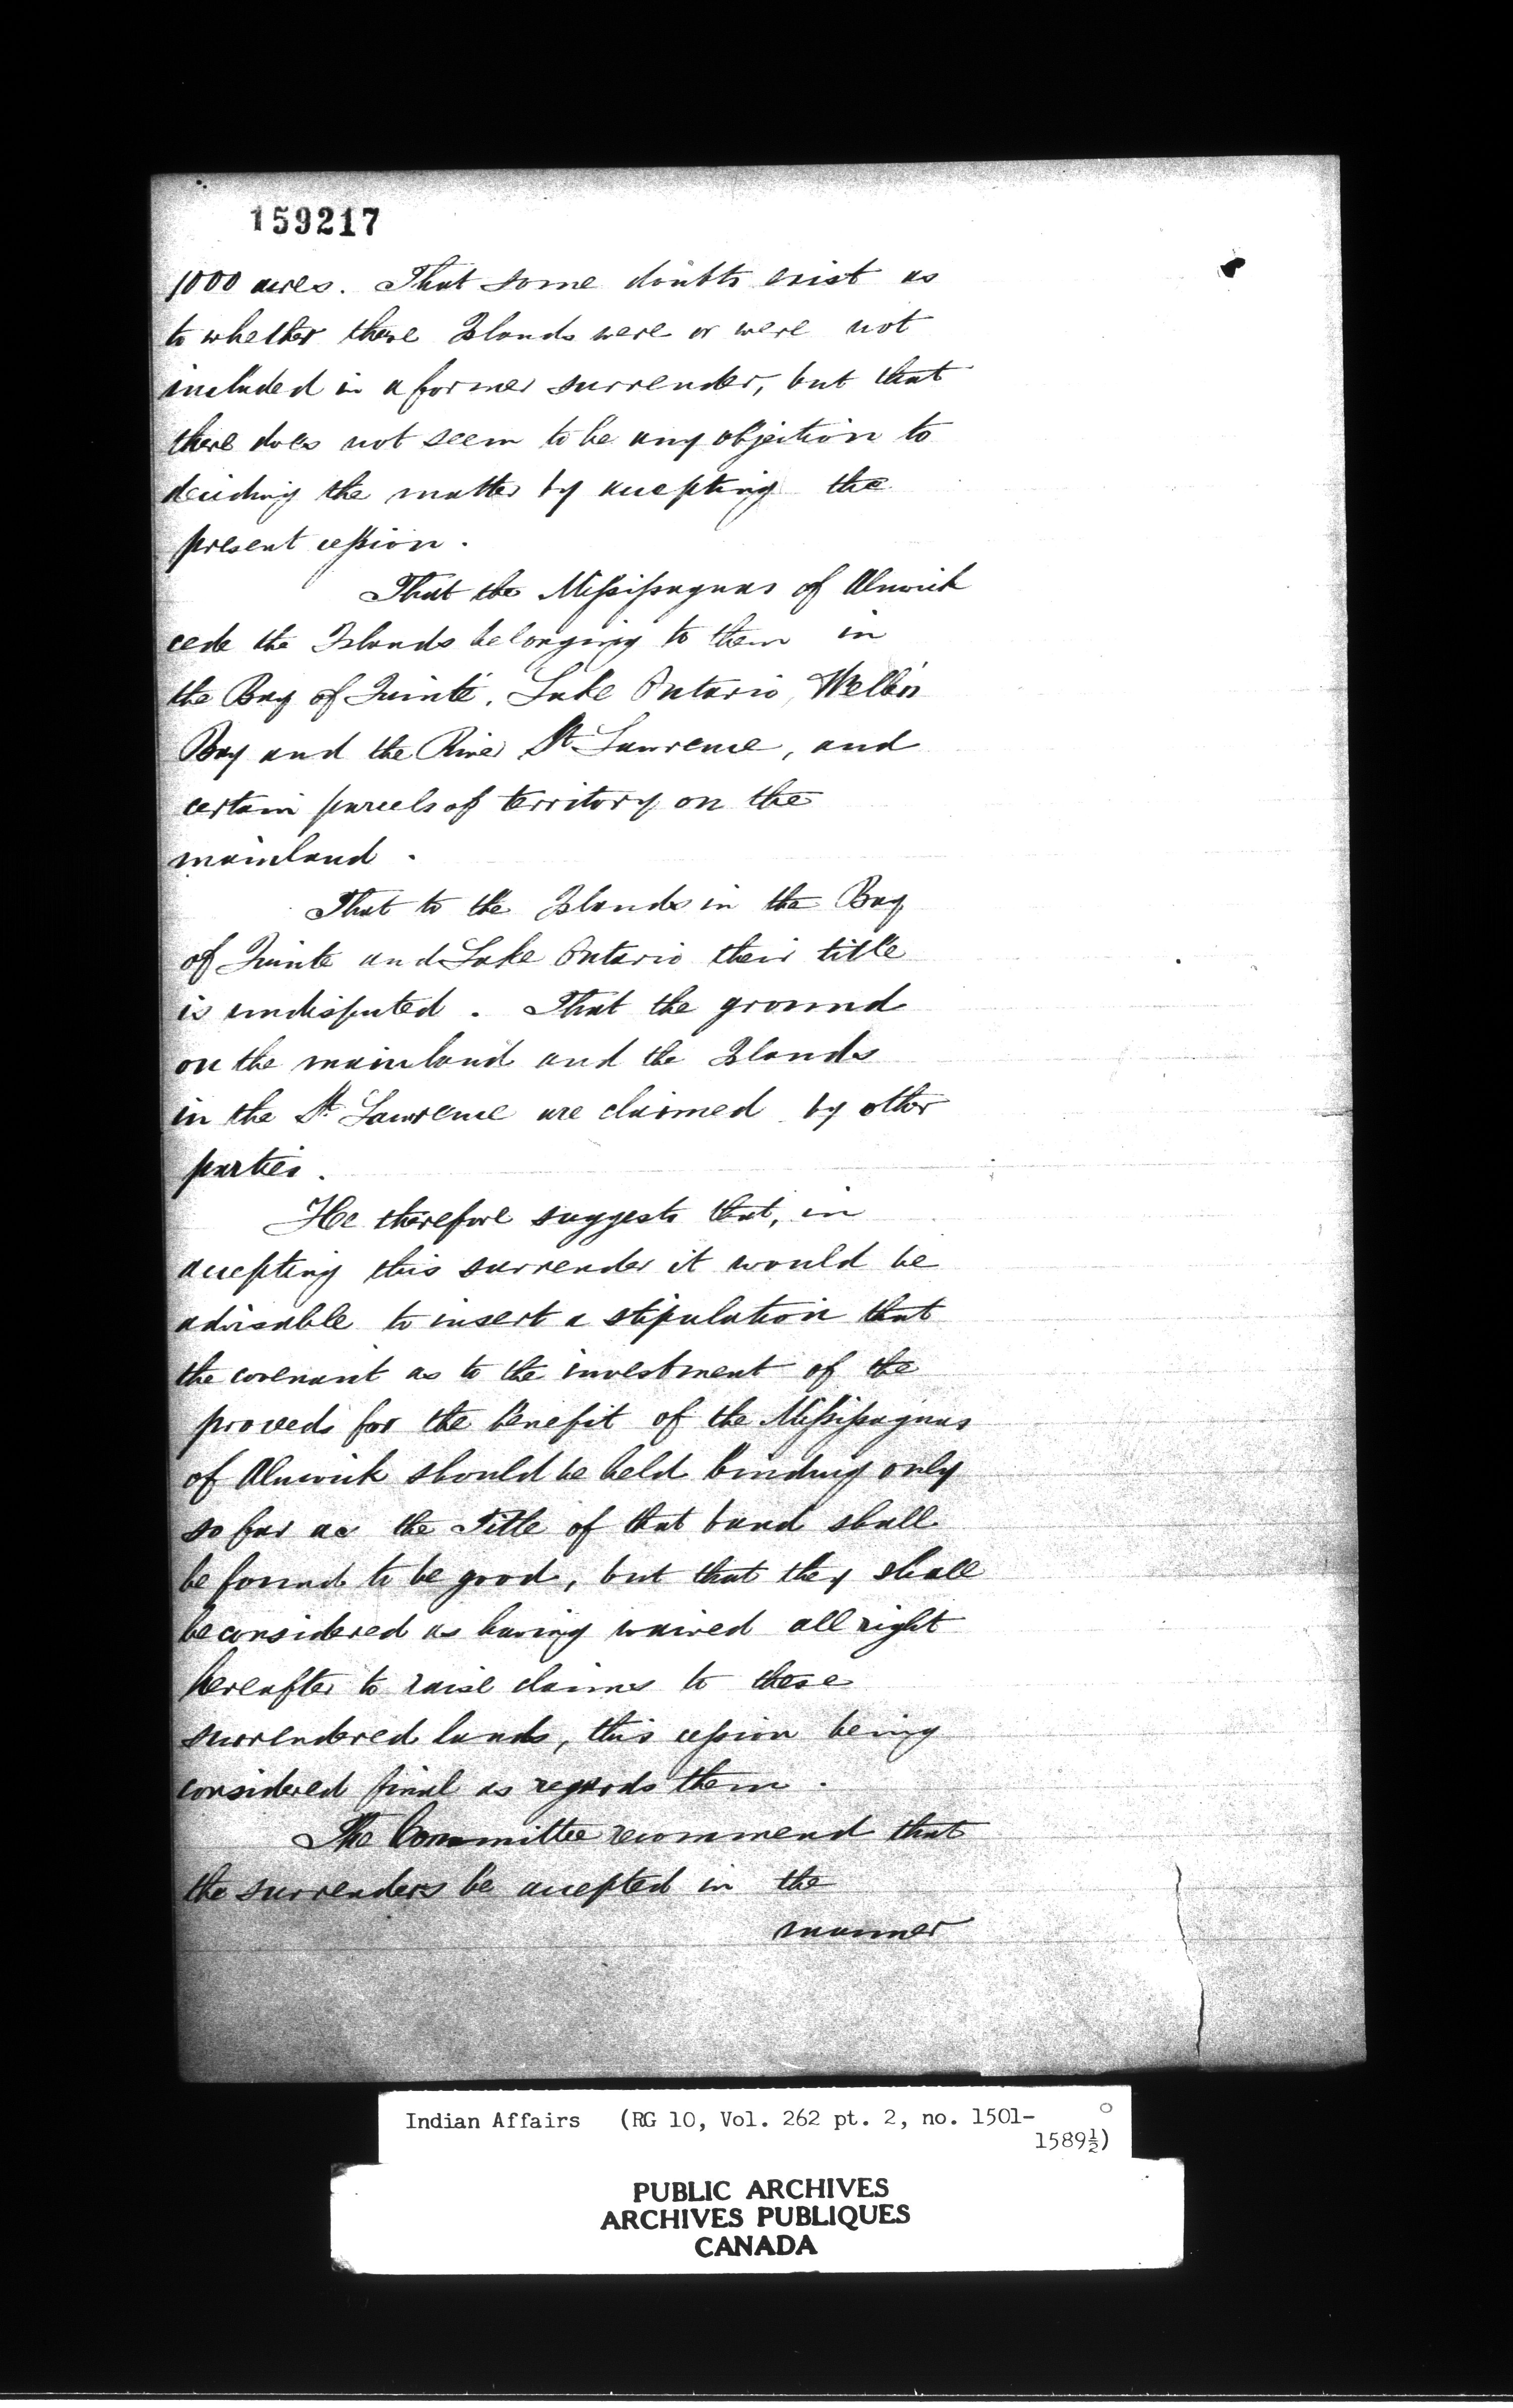 159217
1000 acres. That some doubts exist as
to whether these Islands were or were not
included in a former surrender, but that
there does not seem to be any objection to
deciding the matter by accepting the
present cession.
That the Missisaguas of Alnwick
cede the Islands belonging to them in
the Bay of Quinté, Lake Ontario, Weller's
Bay and the River St Lawrence, and
certain parcels of territory on the
mainland.
That to the Islands in the Bay
of Quinte and Lake Ontario their title
is undisputed. That the ground
on the mainland and the Islands
in the St Lawrence are claimed by other
parties.
He therefore suggests that, in
accepting this surrender it would be
advisable to insert a stipulation that
the covenant as to the investment of the
proceeds for the benefit of the Missisaguas
of Alnwick should be held binding only
so far as the Title of that band shall
be found to be good, but that they shall
be considered as having waived all right
hereafter to raise claims to these
surrendered lands, this cession being
considered final as regards them.
The Committee recommend that
the surrenders be accepted in the
manner
Indian Affairs (RG 10, Vol. 262 pt. 2, no. 1501-
1589½)
PUBLIC ARCHIVES
ARCHIVES PUBLIQUES
CANADA